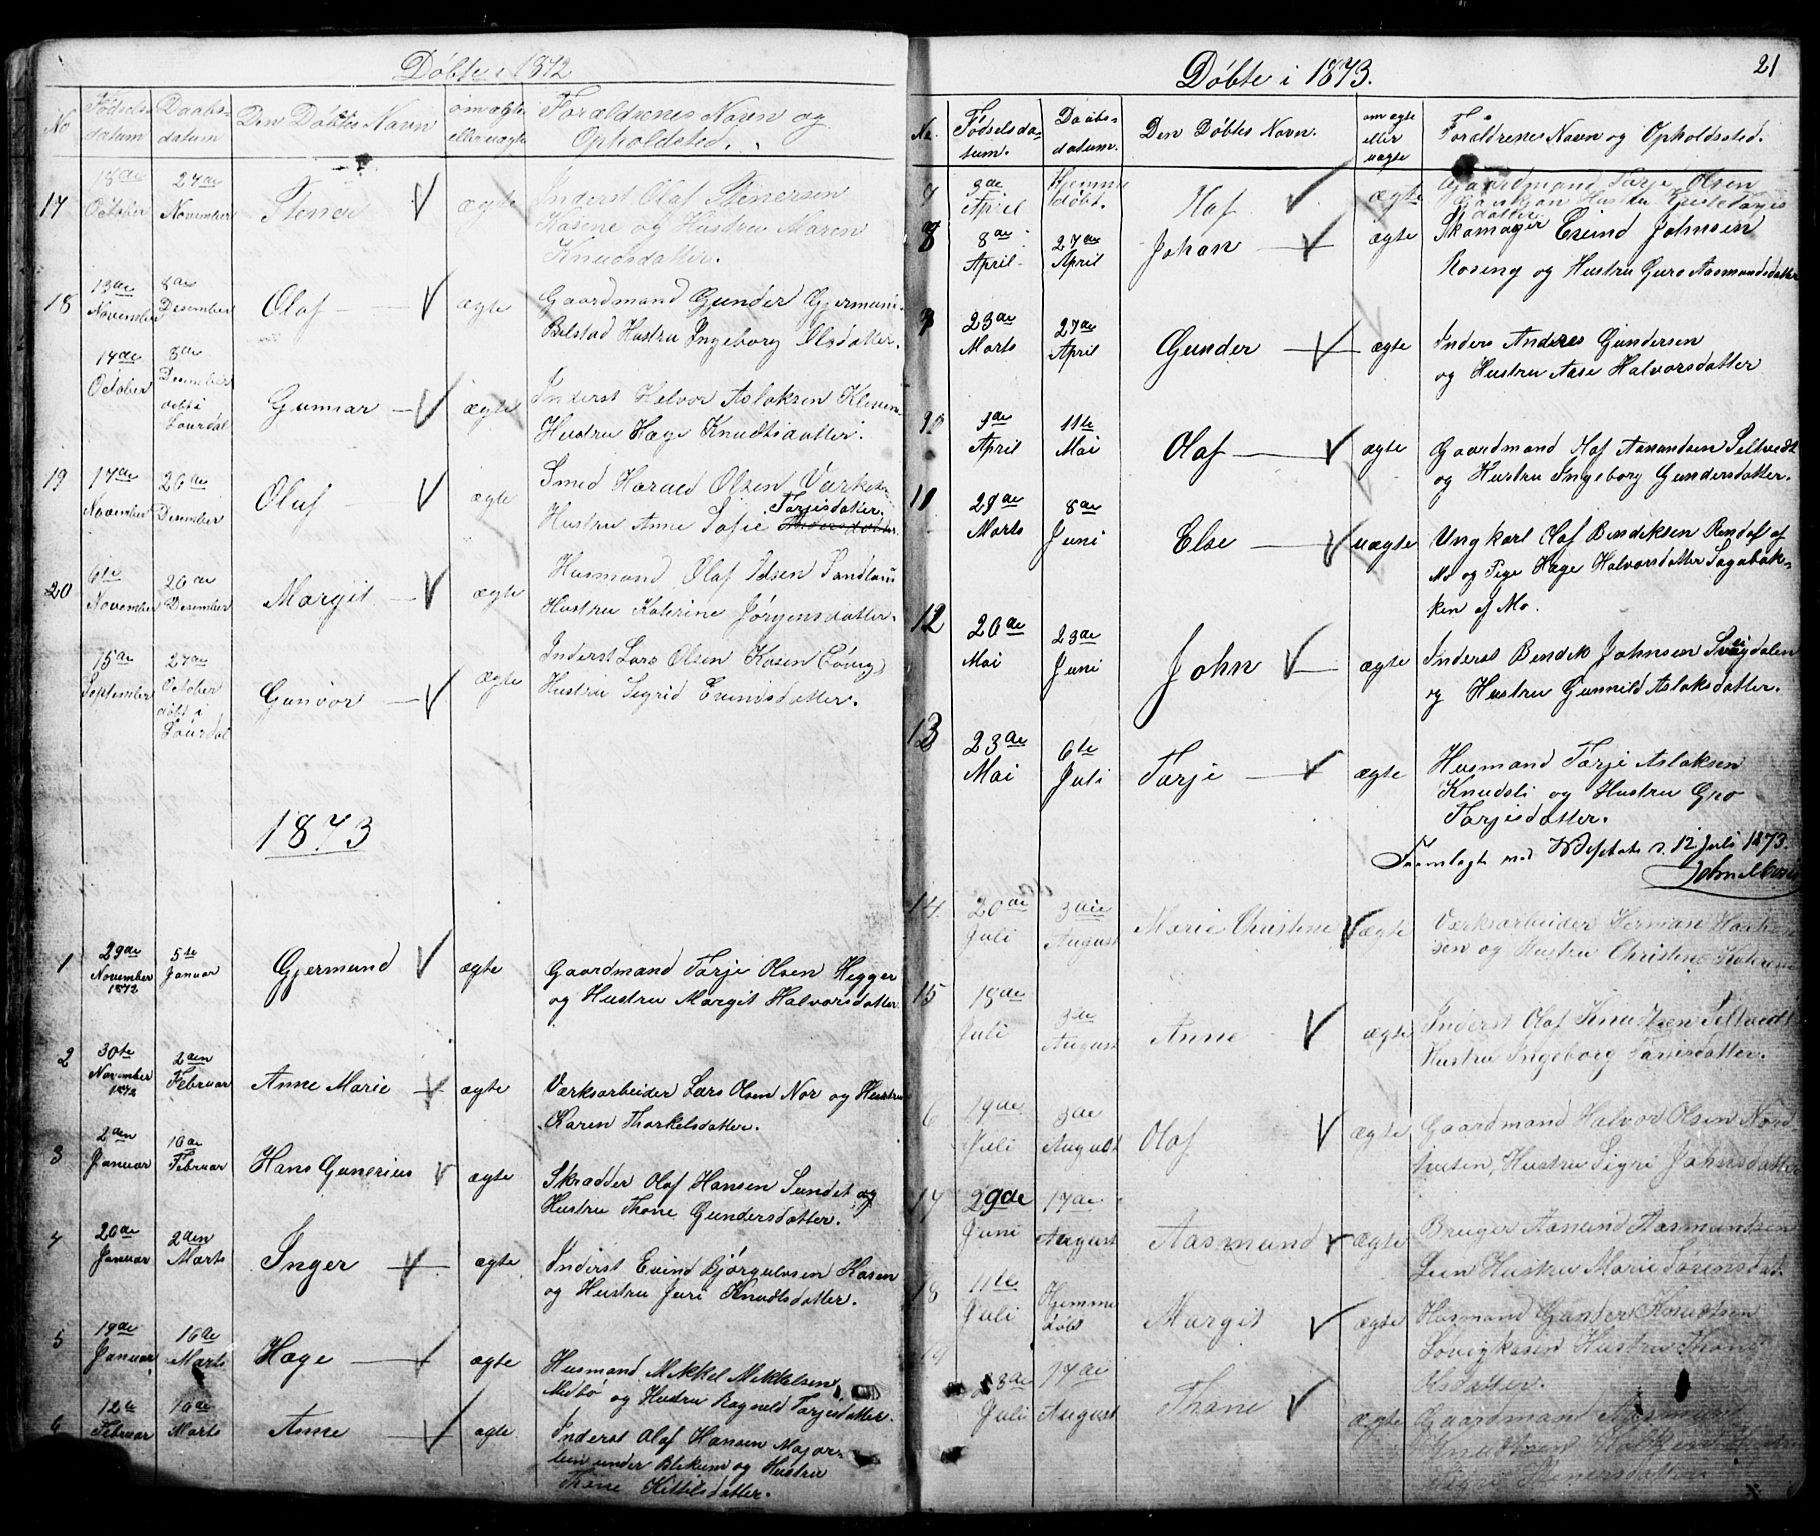 Døbte i 1872
No
Fødsels datum
Daabs datum
Den Døbtes Navn
om ægte eller uægte
Forældrenes Navn og
Opholdsted.
17
18de October
27de November
Stener
ægte
Inderst Olaf Stenersen
Kasene og Hustru Maren
Knudsdatter.
18
13de November
8de Desember
Olaf
ægte
Gaardmand Gunder Gjermun.
Bolstad Hustru Ingeborg Olsdatter.
14de October
8de Desember
Gunnar
ægte
Inderst Helvor Aslaksen Kleven
Hustru Hæge Knudtsdatter.
19
17de November
26de Desember
Oluf
ægte
Smed Harald Olsen Værket
Hustru Anne Sofie Tarjesdatter
20
6te November
26de Desember
Margit
ægte
Husmand Olaf Idsen
Hustru Katerine Jørgensdatter.
15de September
27de October døbt i
Gunvor
ægte
Inderst Lars Olsen Kasen
Hustru Sigrid Evindsdatter.
1873
1
29de November 1872
5te Januar
Gjermund
ægte
Gaardmand Tarje Olsen Hegger
og Hustru Margit Halvorsdatter
2
30te November 1872
2den Februar
Anne Marie
ægte
Værksarbeider Lars Olsen Nor og Hustru
Karen Thorkelsdatter.
3
2den Januar
16de Februar
Hans Gunerius
ægte
Skrædder Olaf Hansen Sundet og
Hustru Thone Gundersdatter.
4
20de Januar
2den Marts
Inger
ægte
Inderst Evind Bjørgulvsen Kasen
og Hustru Juri Knudtsdatter.
5
19de Januar
16de Marts
Hæge
ægte
Husmand Mikkel Mikkelsen
Medbø og Hustru Ragnild Tarjesdatter.
6
12te Februar
16de Marts
Anne
ægte
Inderst Olaf Hansen
under Blekum og Hustru
Thone Kittilsdatter.
21
Døbte i 1873.
No.
Fødselsdatum.
Daabsdatum.
Den Døbtes Navn.
om ægte eller uægte
Forældrenes Navn og Opholdssted.
7
3de April
Hjemme døbt.
Olaf
ægte
Gaardmand Tarje Olsen
Hustru
datter
8
8de April
27de April
Johan
ægte
Skomager Evind Johnsen
Rosing og Hustru Guro Aasmundsdatter
9
23de Marts
27de April
Gunder
ægte
Inders Anders Gundersen
og Hustru Aase Halvorsdatter
10
3de April
11te Mai
Olaf
ægte
Gaardmand Olaf Aanundsen Seltvedt
og Hustru Ingeborg Gundersdatter.
11
29de Marts
8de Juni
Else
uægte
Ungkarl Olaf Bendiksen Rendal af
Mo og Pige Hæge Halvorsdatter Sagabak-
ken af Mo.
12
20de Mai
23de Juni
John
ægte
Inderst Bendik Johnsen Sveigdalen
og Hustru Gunnild Aslaksdatter.
13
23de Mai
6te Juli
Tarje
ægte
Husmand Tarje Aslaksen
Knudsli og Hustru Gro
Tarjesdatter.
Fremlagt ved Visitats d. 12 Juli 1873.
14
20de Juli
3die August
Marie Christine
ægte
Værksarbeider Herman
sen og Hustru Christine
15
18de Juli
3de August
Anne
ægte
Inderst Olaf Knudtsen Seltvedt
Hustru Ingeborg Tarjesdatter.
6
19de Juli
3de August
Olaf
ægte
Gaardmand Halvor Olsen
Hustru Sigri Johnsdatter
17
29de Juni
17de August
Aasmund
ægte
Bruger Aanund Aasmundsen
Lien Hustru Marie Sørensdat.
18
11te Juli
Hjemme døbt
Margit
ægte
Husmand Gunder Knudtsen
Lovigkasen Hustru Thone
Olsdatter.
19
23de Juli
17de August
Thone
ægte
Gaardmand Aasmund
Knudtsen
Stenersdatter